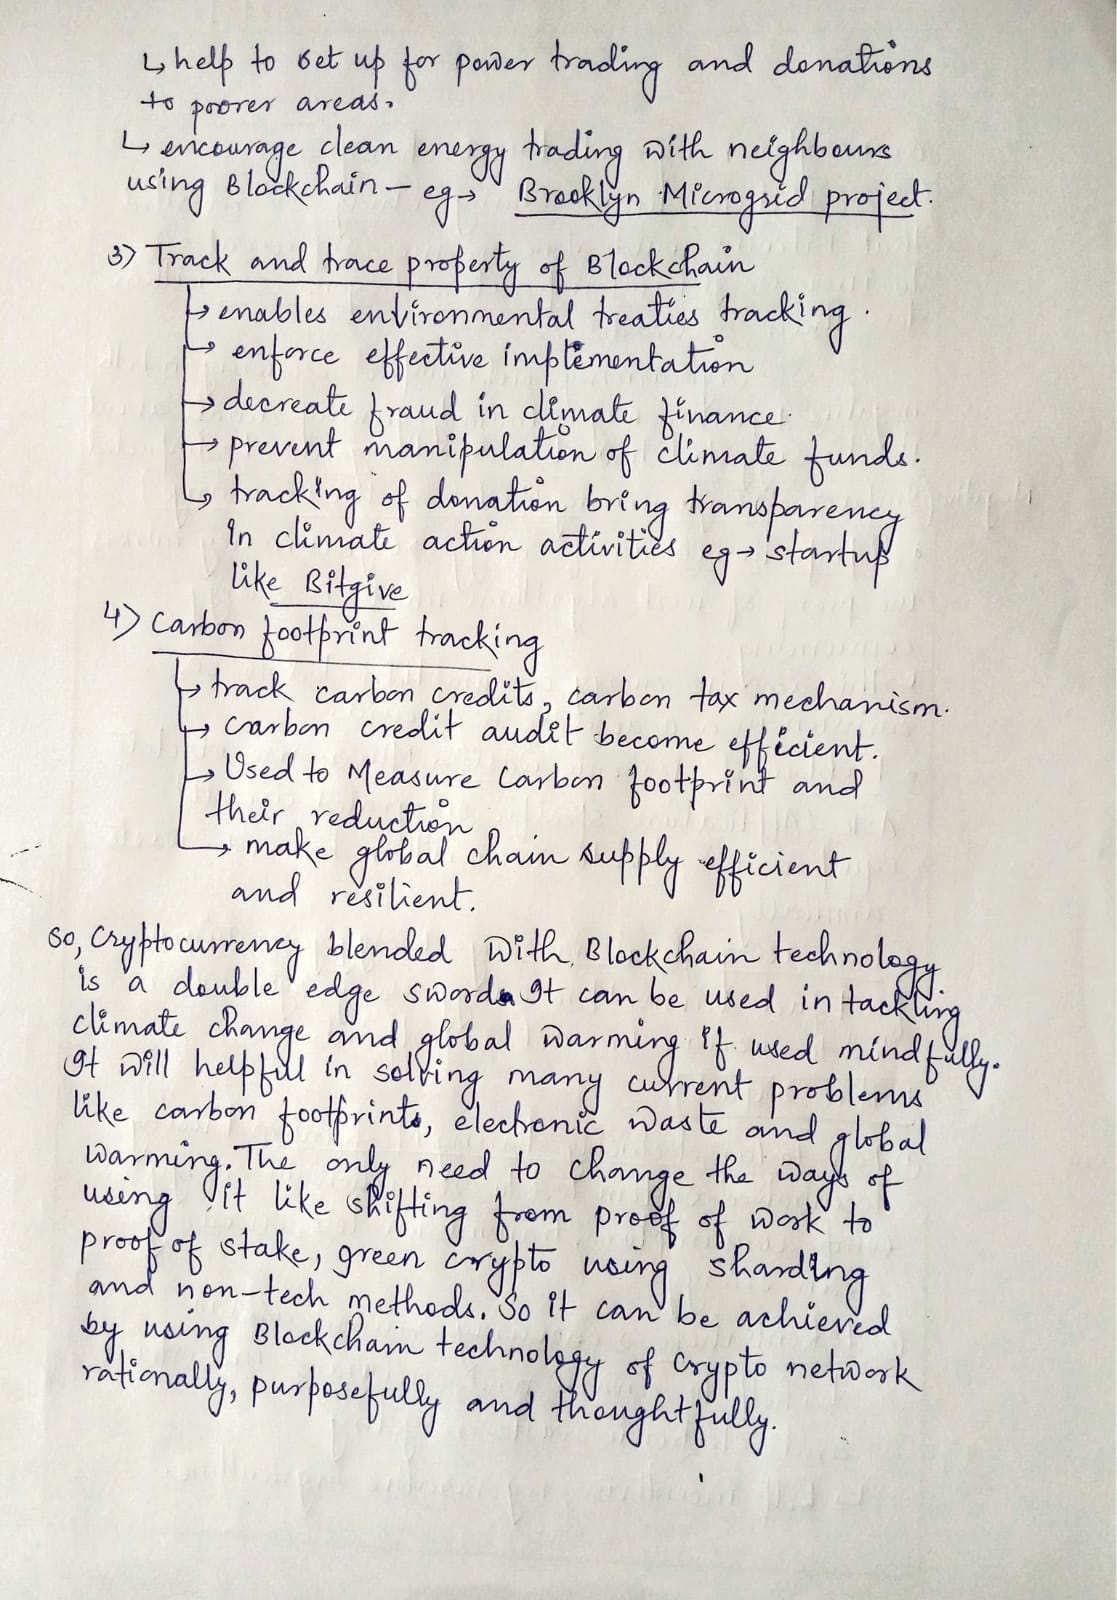 ↳ help to set up for power trading and donations
to poorer areas.
↳ encourage clean energy trading with neighbours
using Blockchain - eg → Brooklyn Microgrid project.
3) Track and trace property of Blockchain
→ enables environmental treaties tracking.
→ enforce effective implementation
→ decreate fraud in climate finance.
→ prevent manipulation of climate funds.
→ tracking of donation bring transparency
in climate action activities eg → startup
like Bitgive
4) Carbon footprint tracking
→ track carbon credits, carbon tax mechanism.
→ carbon credit audit become efficient.
→ Used to Measure Carbon footprint and
their reduction
→ make global chain supply efficient
and resilient.
So, Cryptocurrency blended with Blockchain technology
is a double edge sword. It can be used in tackling
climate change and global warming if used mindfully.
It will helpful in solving many current problems
like carbon footprints, electronic waste and global
warming. The only need to change the ways of
using it like shifting from proof of work to
proof of stake, green crypto using sharding
and non-tech methods. So it can be achieved
by using Blockchain technology of Crypto network
rationally, purposefully and thoughtfully.